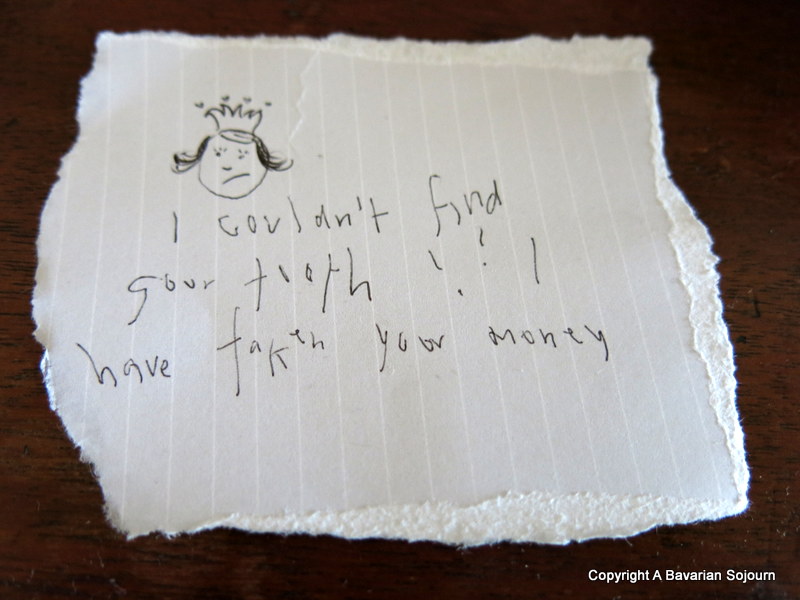 I couldn't find
your tooth !! I
have taken your money
Copyright A Bavarian Sojourn